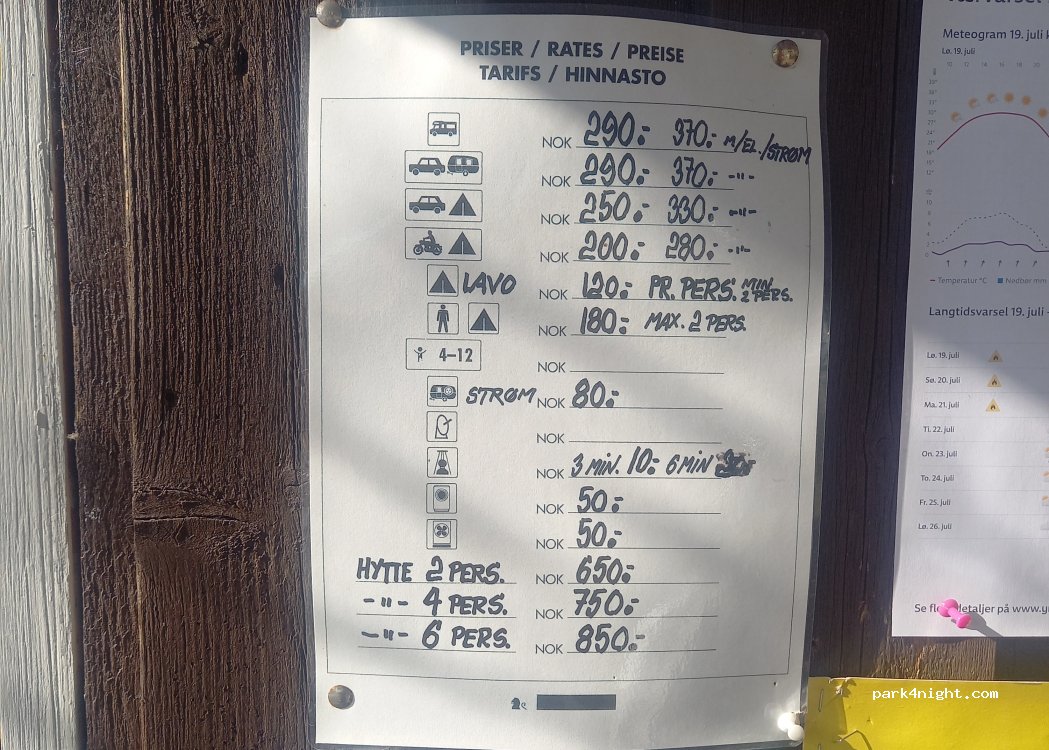 PRISER / RATES / PREISE
TARIFS / HINNASTO
NOK 290:- 370:- M/EL./STRØM
NOK 290:- 370:- -"-
NOK 250:- 330:- -"-
NOK 200:- 280:- -"-
LAVO NOK 120:- PR. PERS. MIN 2 PERS.
NOK 180:- MAX. 2 PERS.
4–12 NOK
STRØM NOK 80:-
NOK
NOK 3 MIN. 10:- 6 MIN
NOK 50:-
NOK 50:-
HYTTE 2 PERS. NOK 650:-
-"- 4 PERS. NOK 750:-
-"- 6 PERS. NOK 850:-
Meteogram 19. juli
Lø. 19. juli
10 12 14 16 18 20
Temperatur °C Nedbør mm
Langtidsvarsel 19. juli -
Lø. 19. juli
Sø. 20. juli
Ma. 21. juli
Ti. 22. juli
On. 23. juli
To. 24. juli
Fr. 25. juli
Lø. 26. juli
Se fle etaljer på www.y
park4night.com